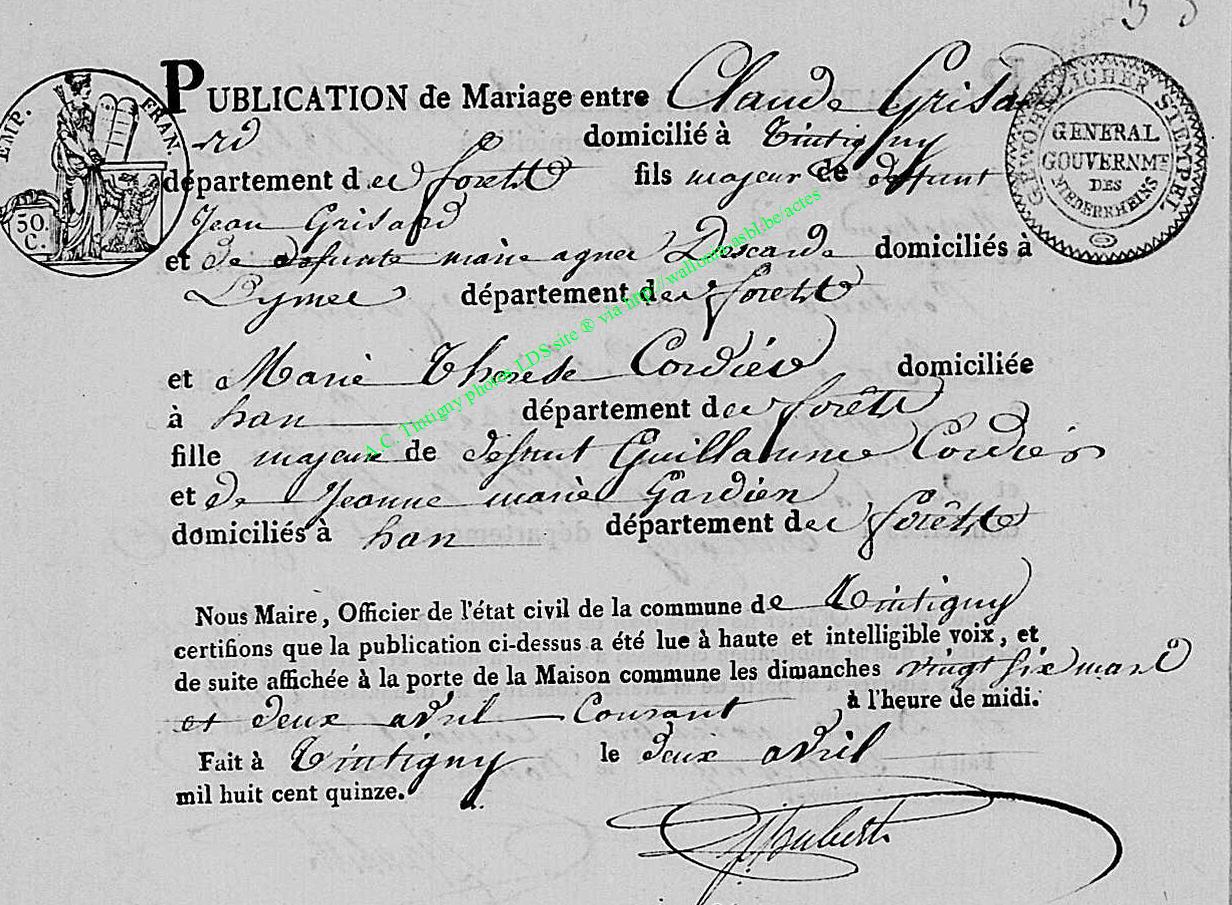 EMP. FRAN.
50. C.
GEWOHNLICHER STEMPEL
GENERAL
GOUVERNMT
DES
NIEDERRHEINS
PUBLICATION de Mariage entre Claude Grisa
rd domicilié à Tintigny
département des forêts fils majeur de defunt
Jean Grisard
et de defunte marie agnes Descarde domiciliés à
département des forêts
et Marie Therese Cordier domiciliée
à han département des forêts
fille majeure de defunt Guillaume Cordier
et de Jeanne marie Gardien
domiciliés à han département des forêts
Nous Maire, Officier de l'état civil de la commune de Tintigny
certifions que la publication ci-dessus a été lue à haute et intelligible voix, et
de suite affichée à la porte de la Maison commune les dimanches vingt six mars
et deux avril courant à l'heure de midi.
Fait à Tintigny le deux avril
mil huit cent quinze.
A.C. Tintigny photos LDS site ® via http://wallonia-asbl.be/actes